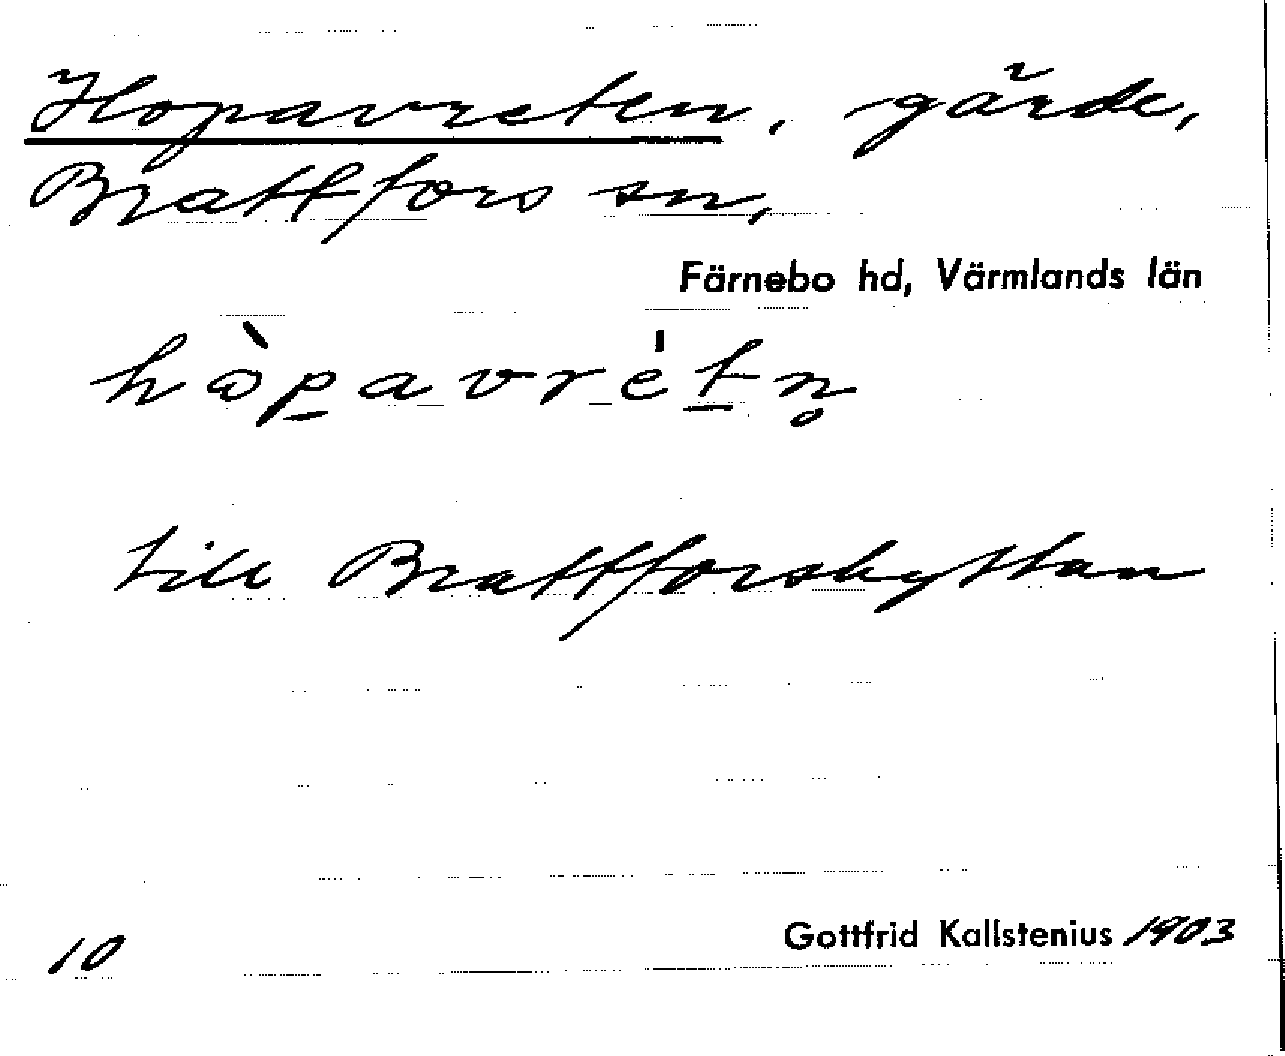 Hopavreten, gärde,
Brattfors sn,
Färnebo hd, Värmlands län
hɷ̀pavrét̠n̥
till Brattforshyttan
10
Gottfrid Kallstenius 1903